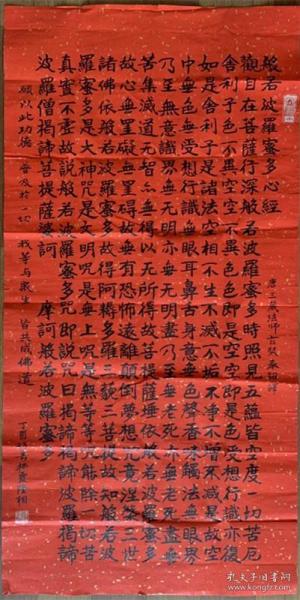 般若波羅蜜多心經
唐三藏法師玄奘奉詔譯
觀自在菩薩行深般若波羅蜜多時照見五蘊皆空度一切苦厄
舍利子色不異空空不異色色即是空空即是色受想行識亦復
如是舍利子是諸法空相不生不滅不垢不淨不增不減是故空
中無色無受想行識無眼耳鼻舌身意無色聲香味觸法無眼界
乃至無意識界無無明亦無無明盡乃至無老死亦無老死盡無
苦集滅道無智亦無得以無所得故菩提薩埵依般若波羅蜜多
故心無罣礙無罣礙故無有恐怖遠離顛倒夢想究竟涅槃三世
諸佛依般若波羅蜜多故得阿耨多羅三藐三菩提故知般若波
羅蜜多是大神咒是大明咒是無上咒是無等等咒能除一切苦
真實不虛故說般若波羅蜜多咒即說咒曰揭諦揭諦波羅揭諦
波羅僧揭諦菩提薩婆訶 摩訶般若波羅蜜多
願以此功德 普及於一切 我等与眾生 皆共成佛道
丁酉
孔夫子旧书网